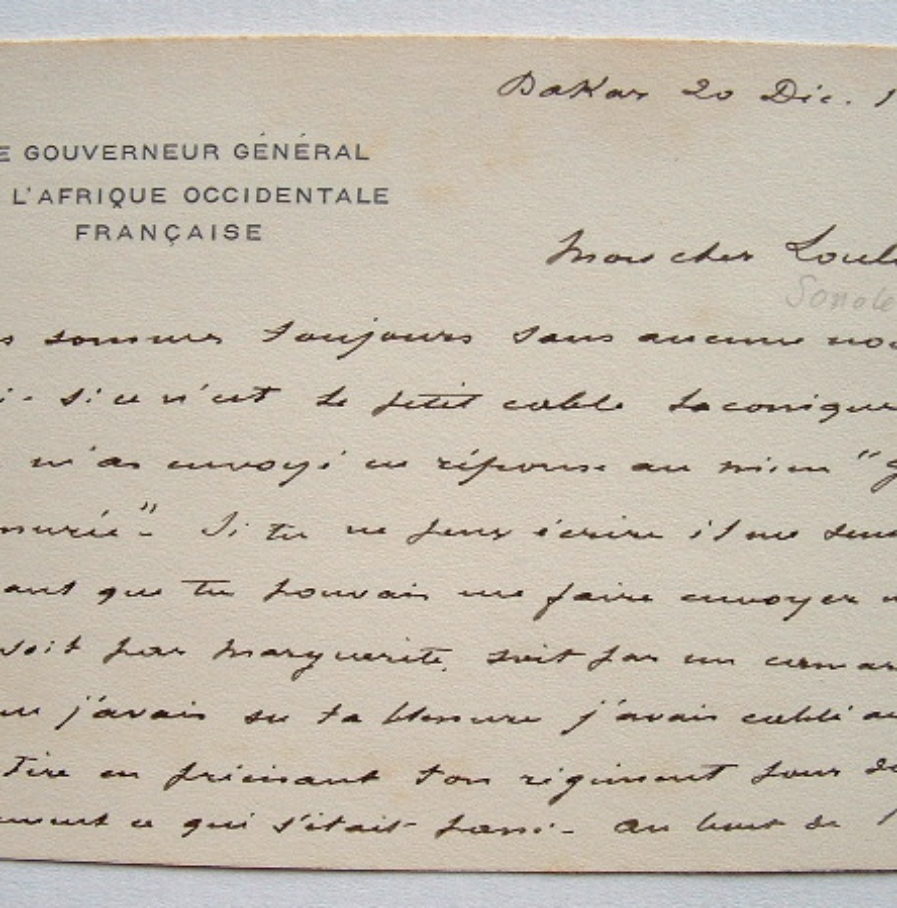 Dakar 20 Déc. 1
E GOUVERNEUR GÉNÉRAL
L'AFRIQUE OCCIDENTALE
FRANÇAISE
Mon cher Loul
Sonole
s sommes toujours sans aucune nou
i - si ce n'est le petit cable laconique
m'as envoyé en réponse au mien "g
murée" - Si tu ne peux écrire il me sem
ant que tu pouvais me faire envoyer u
soit par Marguerite, soit par un camar
j'avais su ta blessure j'avais cablé au
Tire en précisant ton régiment pour sa
ce qui s'était passé - Au bout de 1